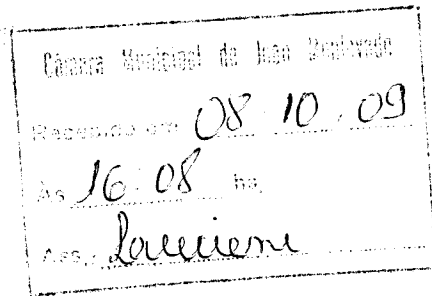 Câmara Municipal de João Monlevade
Recebido em 08.10.09
Às 16:08 hs.
Ass.: